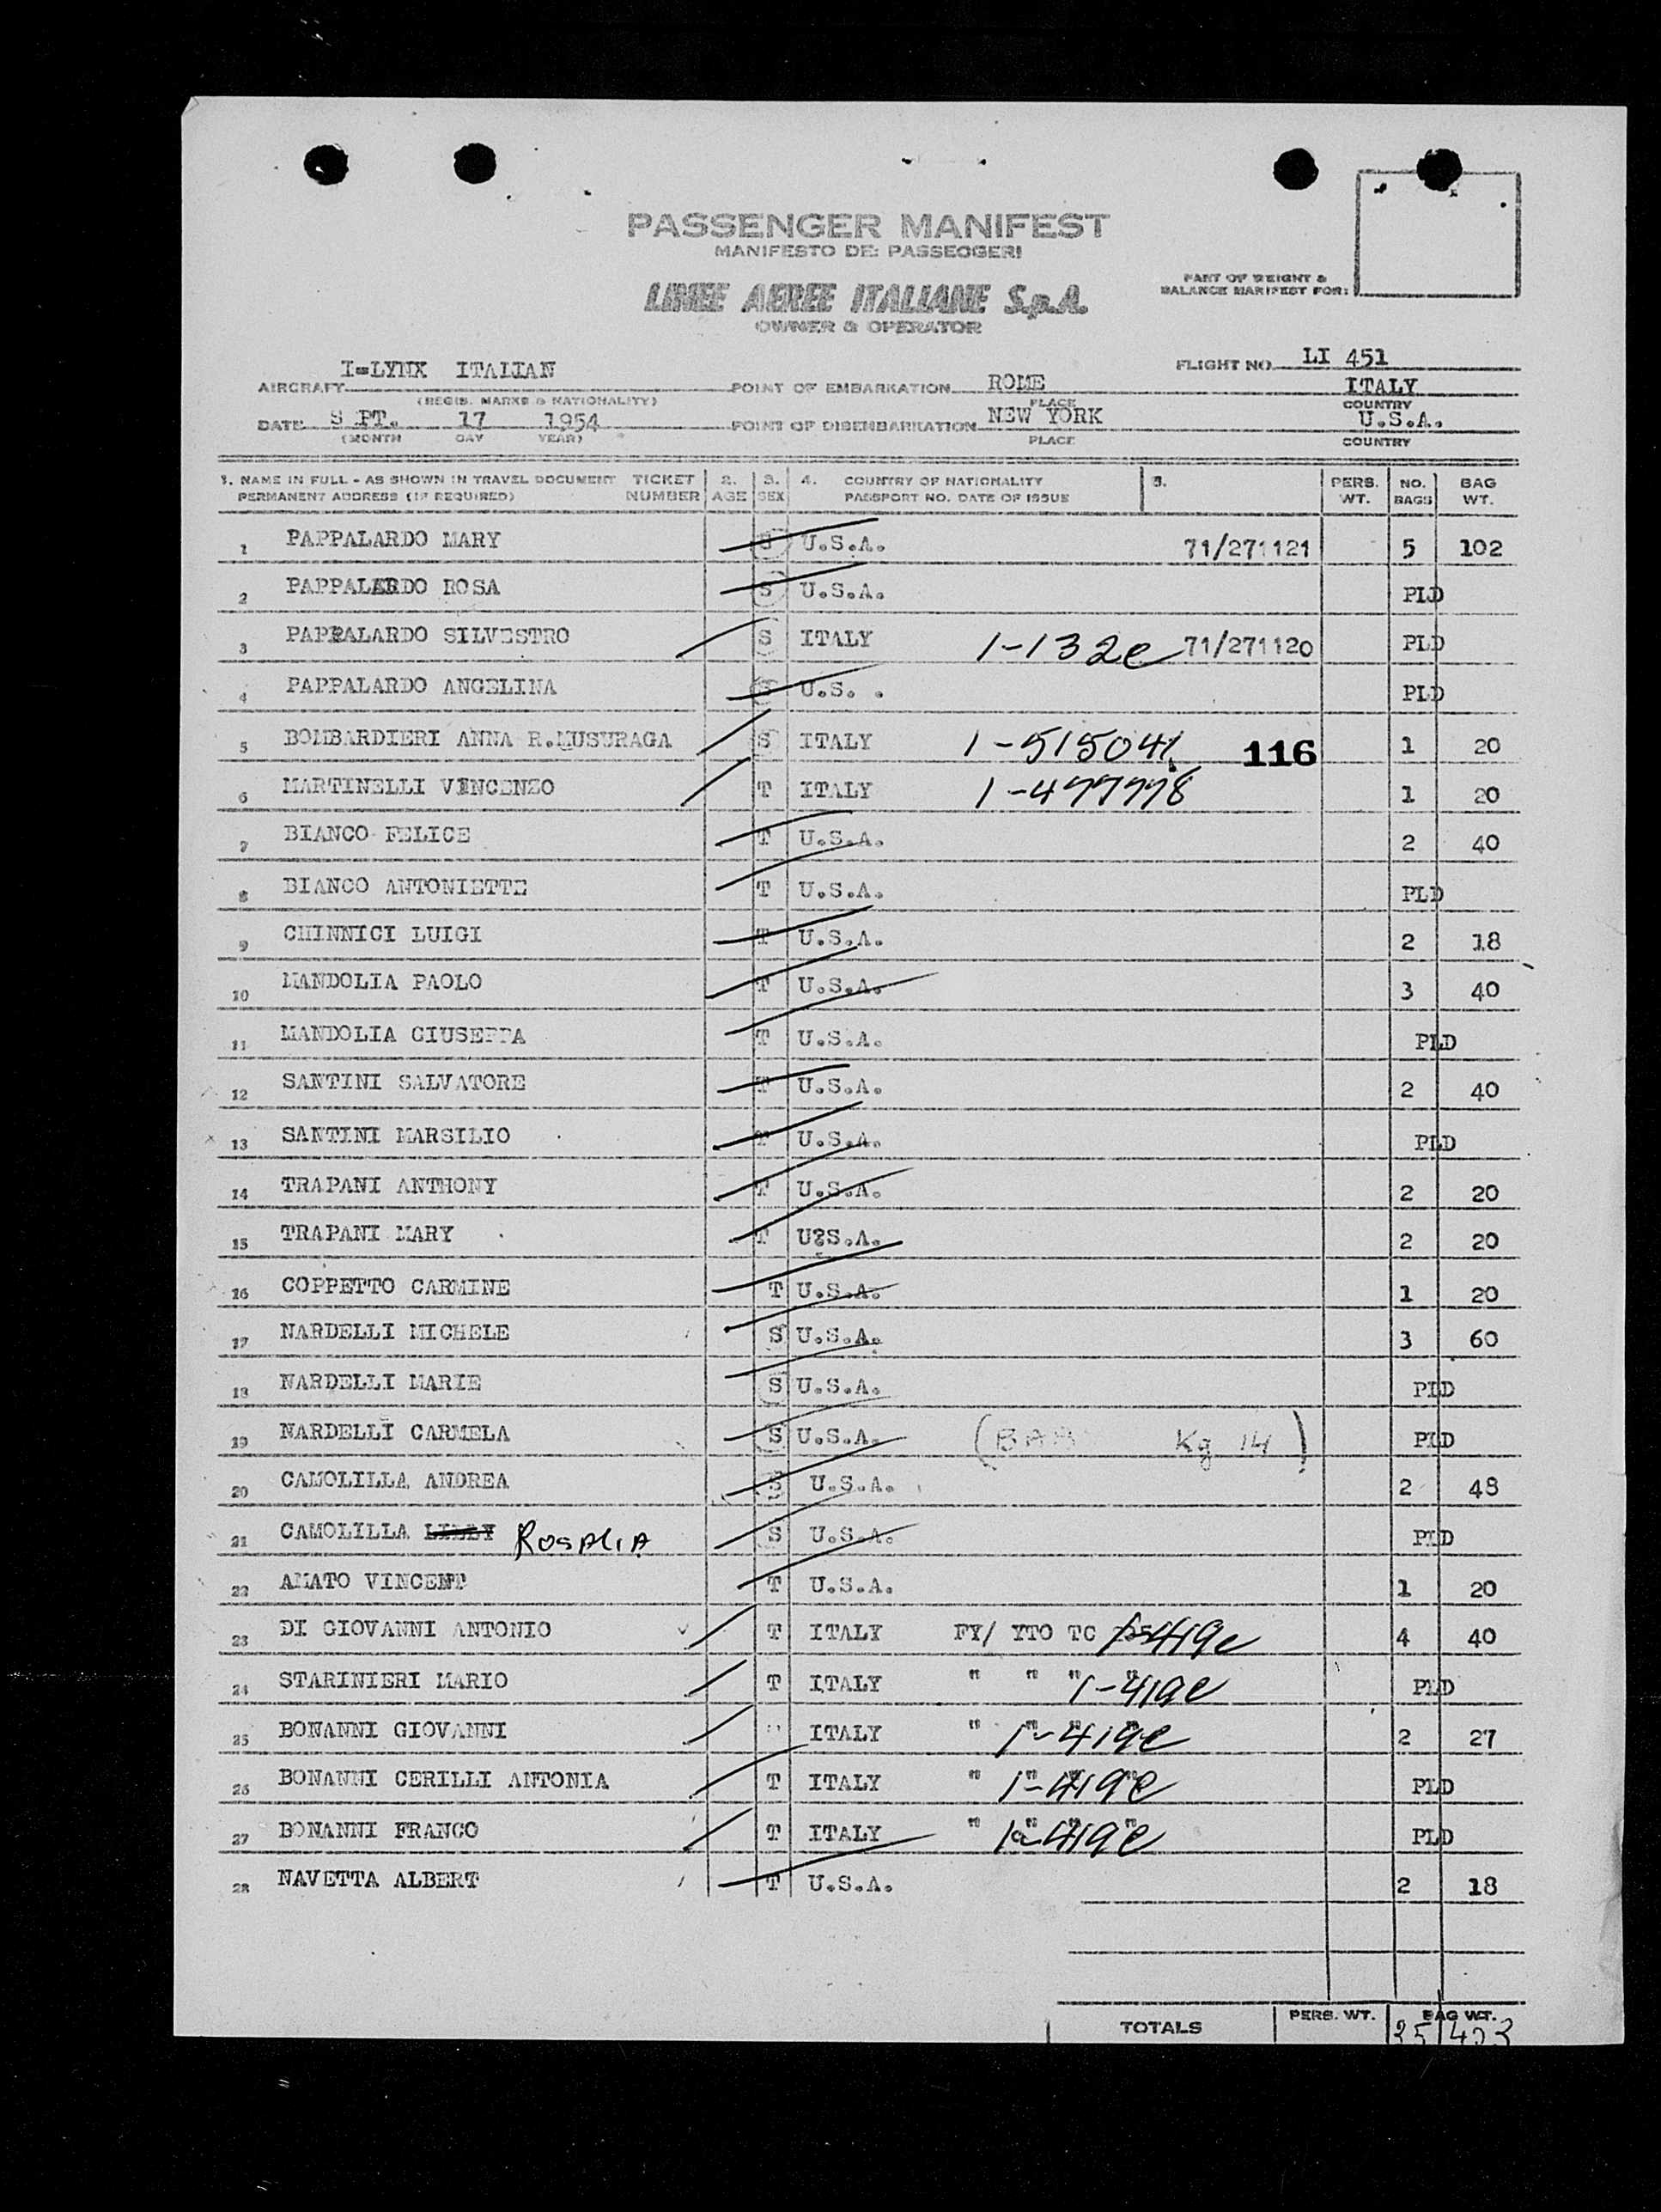 PASSENGER MANIFEST
MANIFESTO DEI PASSEGGERI
LINEE AEREE ITALIANE S.p.A.
OWNER & OPERATOR
PART OF WEIGHT & BALANCE MANIFEST FOR:
AIRCRAFT I-LYNX ITALIAN POINT OF EMBARKATION ROME FLIGHT NO. LI 451
(REGIS. MARKS & NATIONALITY) PLACE ITALY COUNTRY
DATE S PT. 17 1954 POINT OF DISEMBARKATION NEW YORK U.S.A.
(MONTH DAY YEAR) PLACE COUNTRY
1. NAME IN FULL - AS SHOWN IN TRAVEL DOCUMENT TICKET 2. 3. 4. COUNTRY OF NATIONALITY 5. PERS. NO. BAG
PERMANENT ADDRESS (IF REQUIRED) NUMBER AGE SEX PASSPORT NO. DATE OF ISSUE WT. BAGS WT.
1 PAPPALARDO MARY S U.S.A. 71/271121 5 102
2 PAPPALARDO ROSA S U.S.A. PLD
3 PAPPALARDO SILVESTRO S ITALY 1-132e 71/271120 PLD
4 PAPPALARDO ANGELINA S U.S. . PLD
5 BOMBARDIERI ANNA R.MUSURAGA S ITALY 1-515041 116 1 20
6 MARTINELLI VINCENZO T ITALY 1-477778 1 20
7 BIANCO FELICE T U.S.A. 2 40
8 BIANCO ANTONIETTE T U.S.A. PLD
9 CHINNICI LUIGI T U.S.A. 2 18
10 MANDOLIA PAOLO T U.S.A. 3 40
11 MANDOLIA GIUSEPPA T U.S.A. PLD
12 SANTINI SALVATORE T U.S.A. 2 40
13 SANTINI MARSILIO T U.S.A. PLD
14 TRAPANI ANTHONY T U.S.A. 2 20
15 TRAPANI MARY T U?S.A. 2 20
16 COPPETTO CARMINE T U.S.A. 1 20
17 NARDELLI MICHELE S U.S.A. 3 60
18 NARDELLI MARIE S U.S.A. PLD
19 NARDELLI CARMELA S U.S.A. ( Kg 14 ) PLD
20 CAMOLILLA ANDREA S U.S.A. 2 48
21 CAMOLILLA ROSALIA S U.S.A. PLD
22 AMATO VINCENT T U.S.A. 1 20
23 DI GIOVANNI ANTONIO T ITALY FY/ YTO TC 1-419e 4 40
24 STARINIERI MARIO T ITALY " " " " 1-419e PLD
25 BONANNI GIOVANNI ITALY " " " " 1-419e 2 27
26 BONANNI CERILLI ANTONIA T ITALY " " " " 1-419e PLD
27 BONANNI FRANCO T ITALY " " " " 1-419e PLD
28 NAVETTA ALBERT T U.S.A. 2 18
TOTALS PERS. WT. BAG WT.